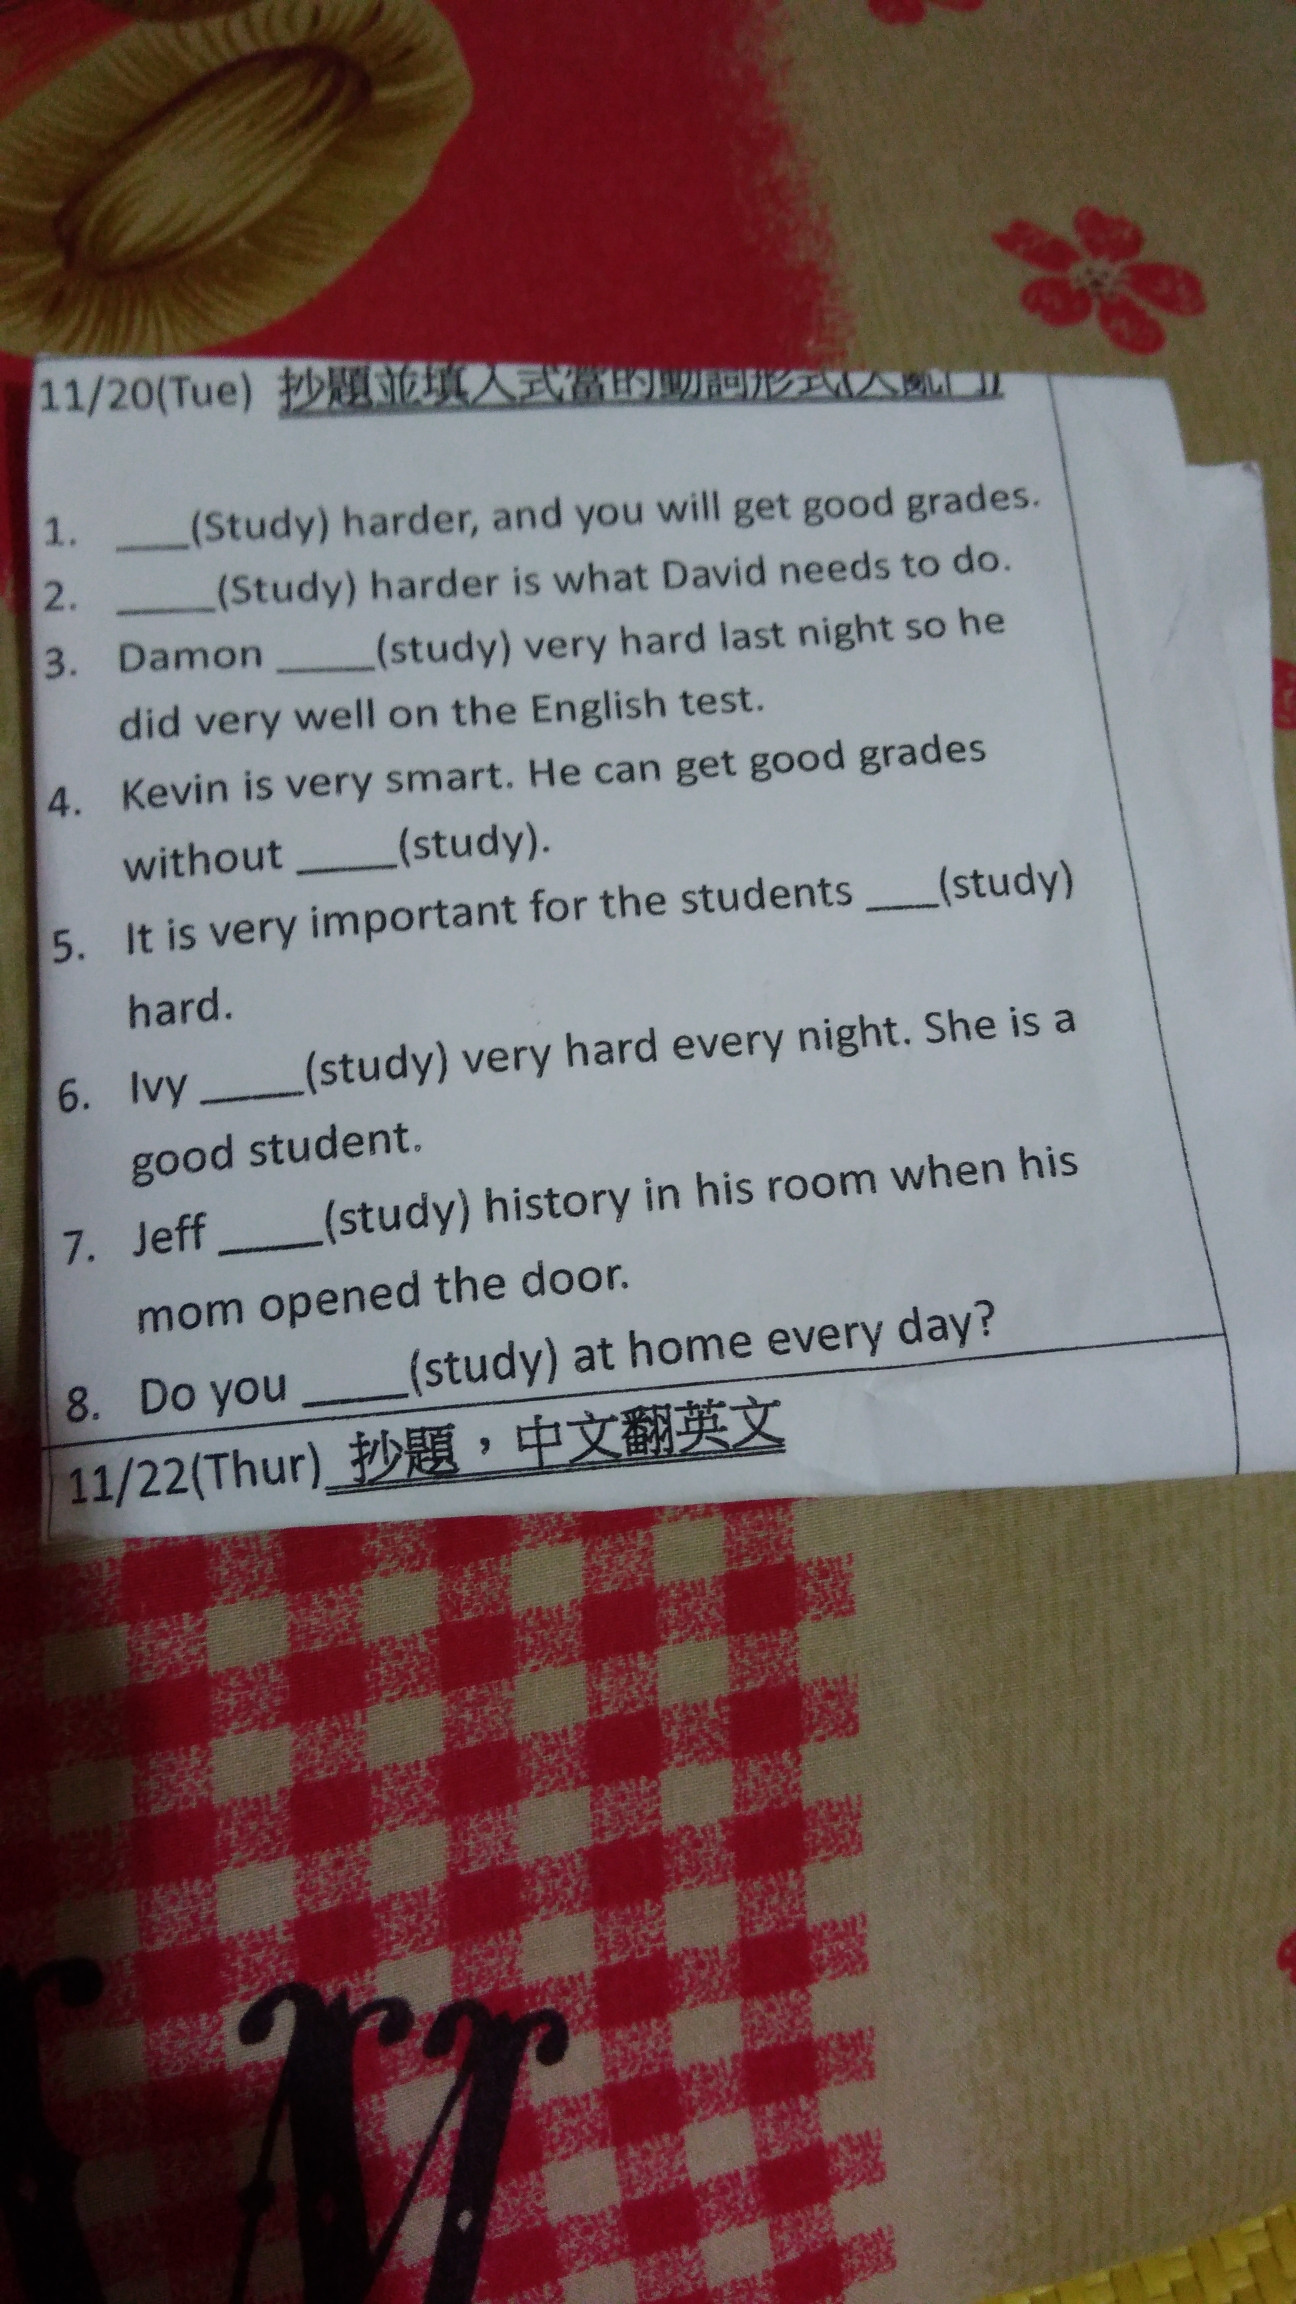 11/20(Tue) 抄題並填入式當的動詞形式(大亂鬥)
1. ____(Study) harder, and you will get good grades.
2. _____(Study) harder is what David needs to do.
3. Damon _____(study) very hard last night so he
did very well on the English test.
4. Kevin is very smart. He can get good grades
without _____(study).
5. It is very important for the students ____(study)
hard.
6. Ivy _____(study) very hard every night. She is a
good student.
7. Jeff _____(study) history in his room when his
mom opened the door.
8. Do you _____(study) at home every day?
11/22(Thur) 抄題，中文翻英文